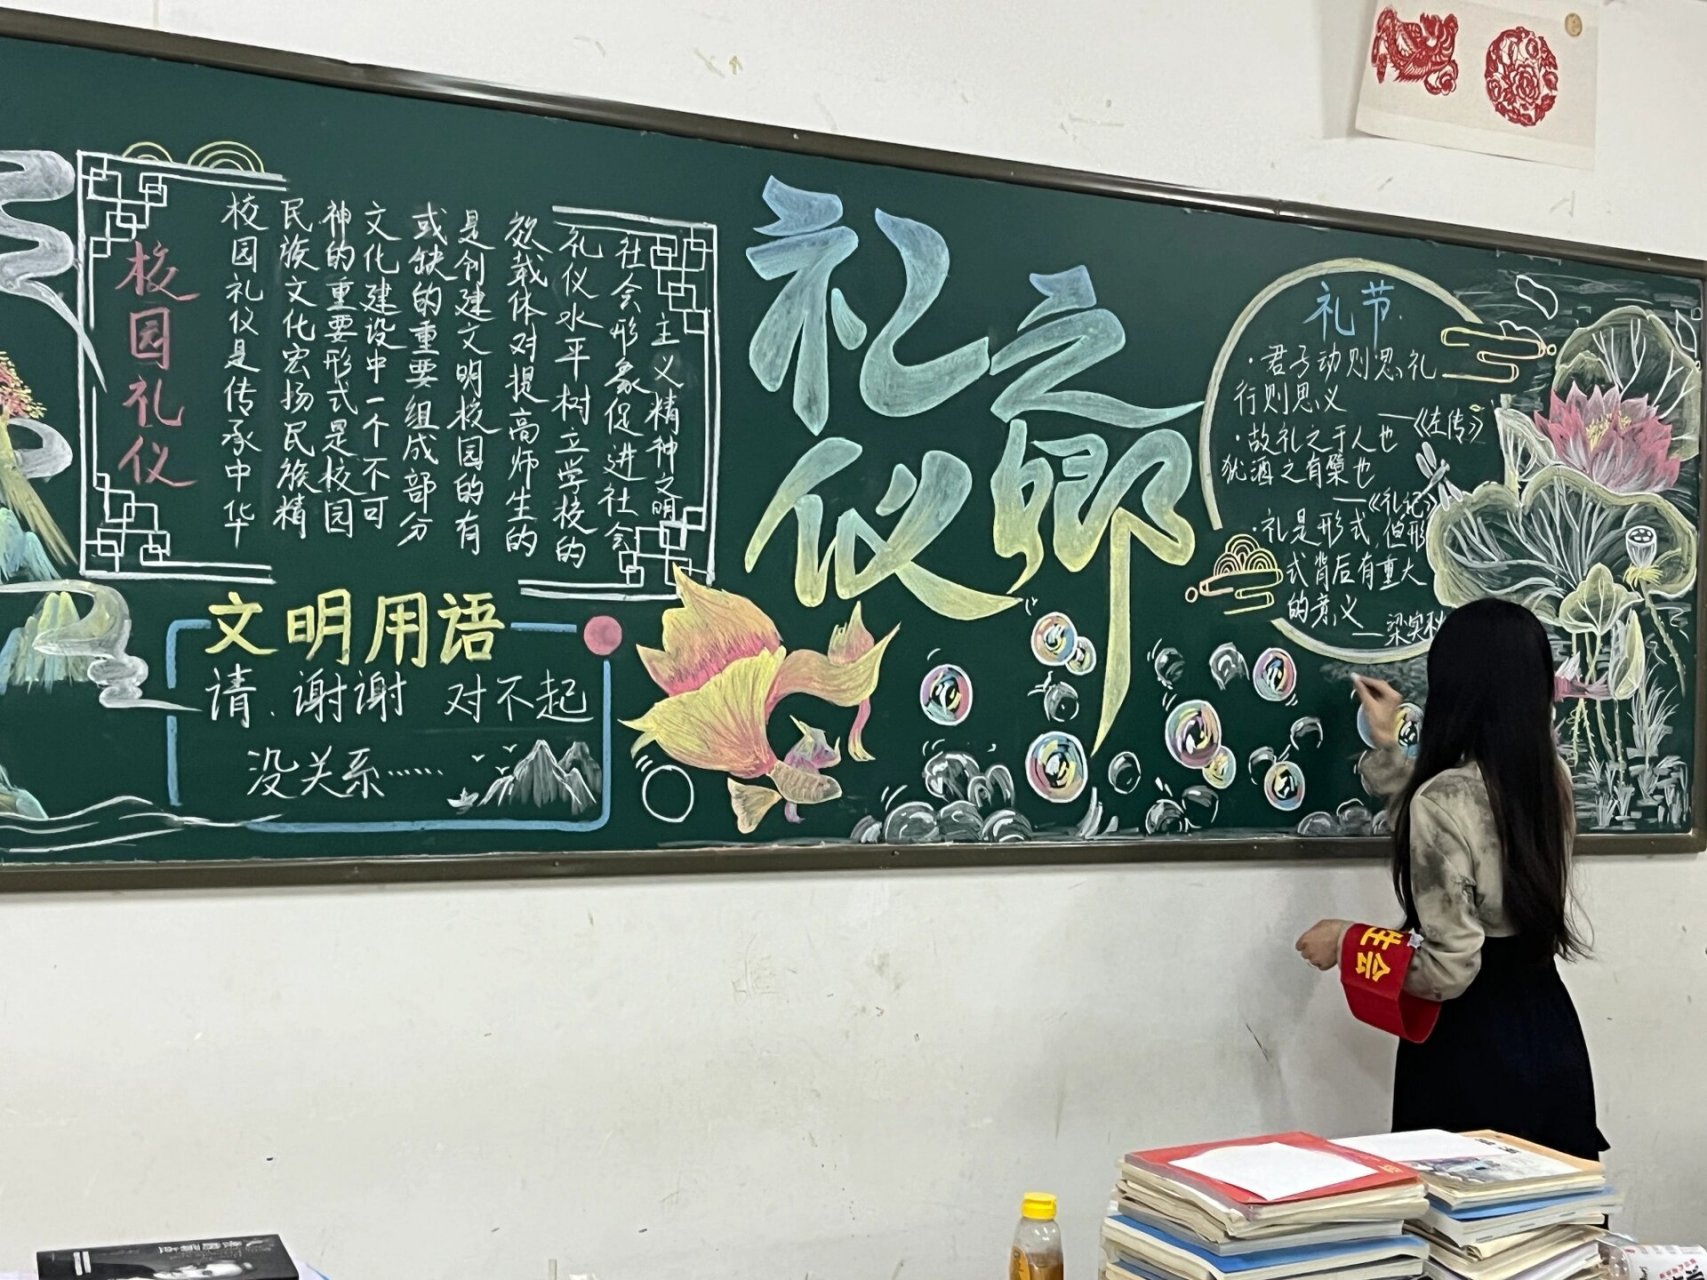 校园礼仪
校园礼仪是传承中华
民族文化宏扬民族精
神的重要形式是校园
文化建设中一个不可
或缺的重要组成部分
是创建文明校园的有
效载体对提高师生的
礼仪水平树立学校的
社会形象促进社会
主义精神文明
文明用语
请、谢谢 对不起
没关系……
礼仪
之鄉
礼节
·君子动则思礼
行则思义
——《左传》
·故礼之于人也
犹酒之有蘖也
——《礼记》
·礼是形式,但形
式背后有重大
的意义
——梁实秋
生会